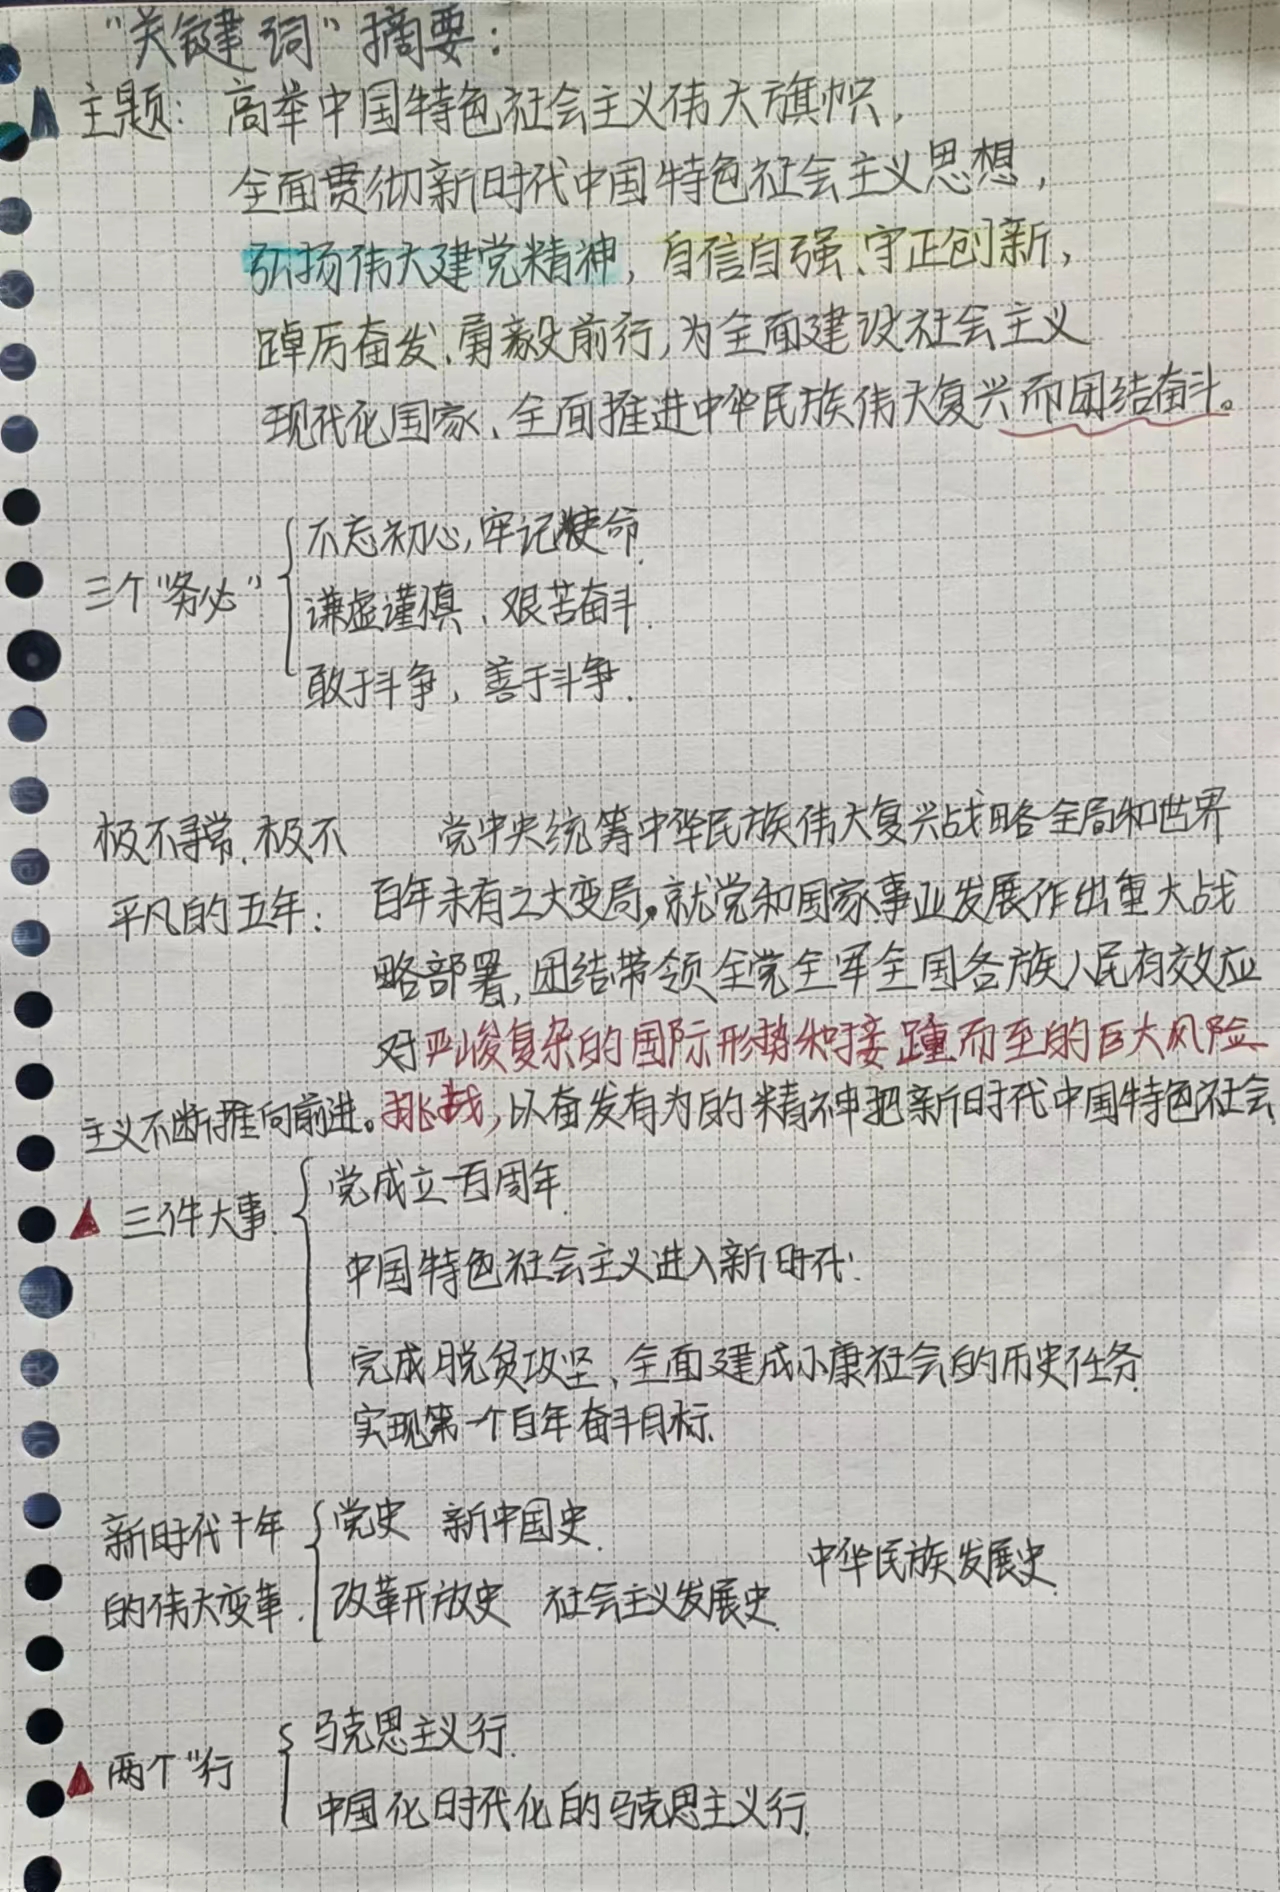 “关键词”摘要：
主题：高举中国特色社会主义伟大旗帜，
全面贯彻新时代中国特色社会主义思想，
弘扬伟大建党精神，自信自强、守正创新，
踔厉奋发、勇毅前行，为全面建设社会主义
现代化国家、全面推进中华民族伟大复兴而团结奋斗。
三个“务必”
不忘初心，牢记使命.
谦虚谨慎、艰苦奋斗.
敢于斗争，善于斗争.
极不寻常.极不
平凡的五年：
党中央统筹中华民族伟大复兴战略全局和世界
百年未有之大变局，就党和国家事业发展作出重大战
略部署，团结带领全党全军全国各族人民有效应
对严峻复杂的国际形势和接踵而至的巨大风险
挑战，以奋发有为的精神把新时代中国特色社会
主义不断推向前进。
三件大事.
党成立一百周年.
中国特色社会主义进入新时代.
完成脱贫攻坚、全面建成小康社会的历史任务.
实现第一个百年奋斗目标.
新时代十年
的伟大变革.
党史 新中国史.
改革开放史 社会主义发展史.
中华民族发展史.
两个“行
马克思主义行.
中国化时代化的马克思主义行.